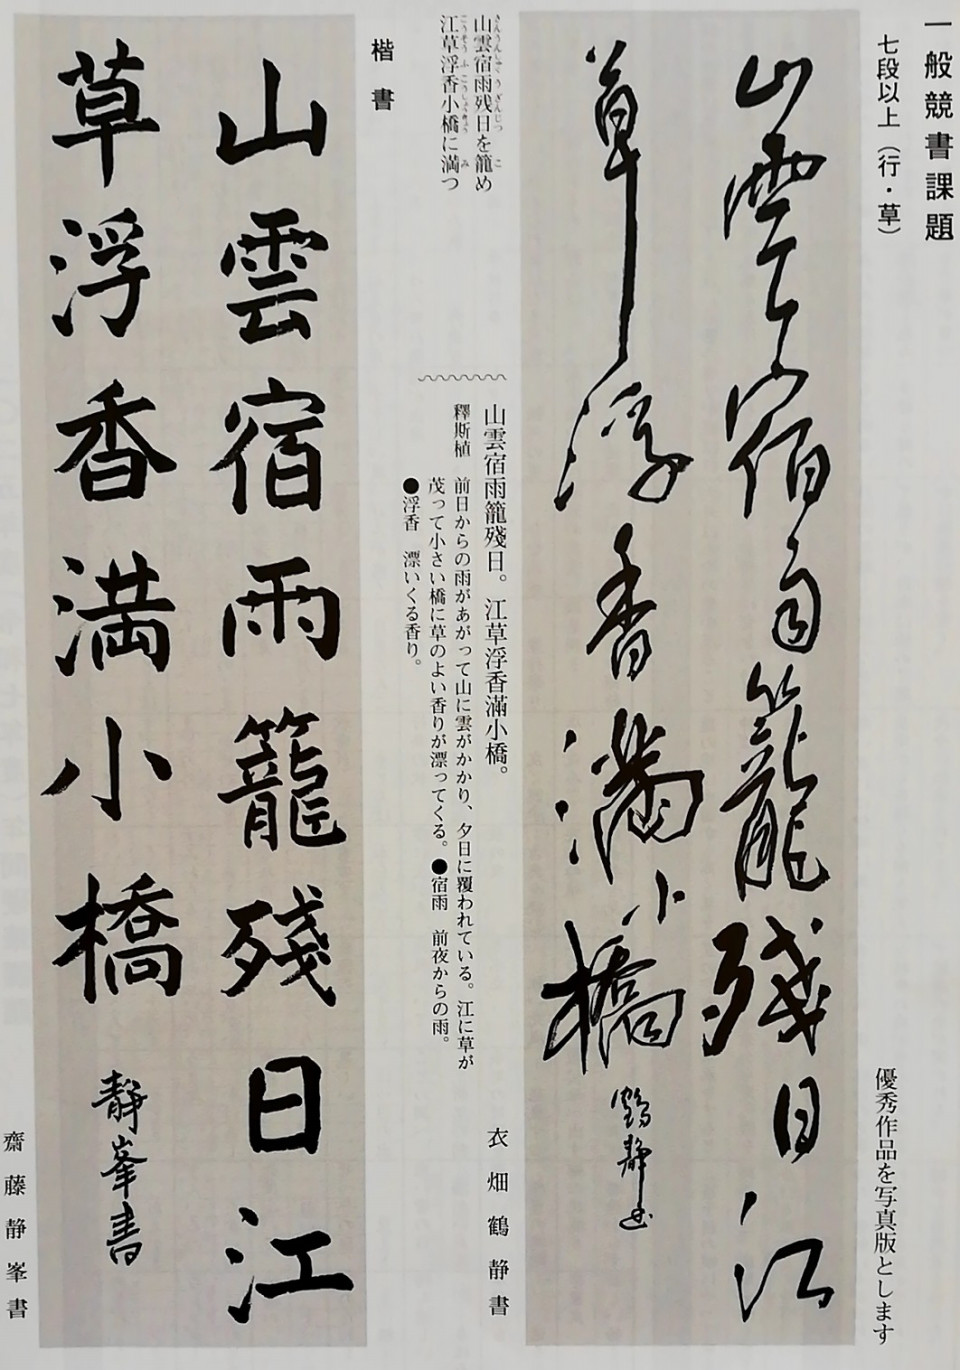 一般競書課題
七段以上（行・草）
優秀作品を写真版とします
山雲宿雨籠残日江
草浮香満小橋
鶴静書
衣畑鶴静書
山雲宿雨残日を籠め
さんうんしゅくうざんじつ こ
江草浮香小橋に満つ
こうそうふこうしょうきょう み
山雲宿雨籠殘日。江草浮香滿小橋。
釋斯植　前日からの雨があがって山に雲がかかり、夕日に覆われている。江に草が
茂って小さい橋に草のよい香りが漂ってくる。●宿雨　前夜からの雨。
●浮香　漂いくる香り。
楷書
山雲宿雨籠殘日江
草浮香満小橋
静峯書
齋藤静峯書